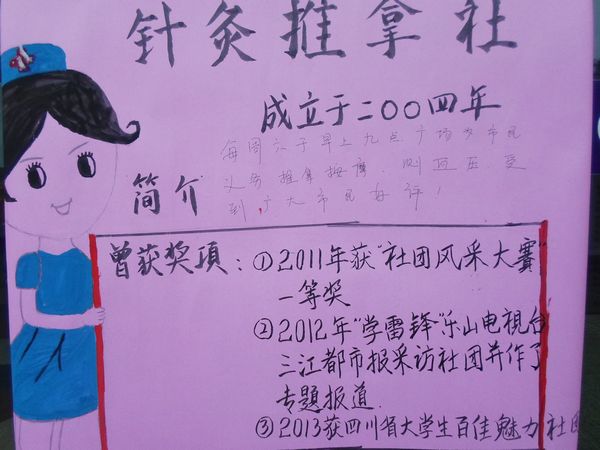 针灸推拿社
成立于二〇〇四年
每周六于早上九点广场为市民
义务推拿按摩.测血压.受
到广大市民好评!
简介
曾获奖項:①2011年获"社团风采大賽"
一等奖
②2012年"学雷锋"乐山电視台
三江都市报采访社团并作了
专題报道.
③2013获四川省大学生百佳魅力社团